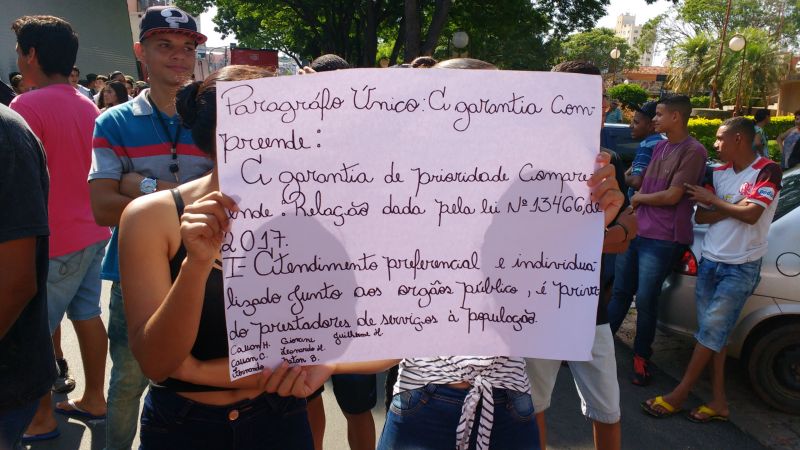 Paragráfo Único: A garantia Com-
preende:
A garantia de prioridade Compre
ende: Relação dada pela lei Nº 13466, de
2017.
I- Atendimento preferencial e individua-
lizado junto aos orgãos público, é priva
do prestadores de serviços à população
Cauan H. Giovane Guilherme H
Cauan C. Leonardo H.
Fernando Naton B.